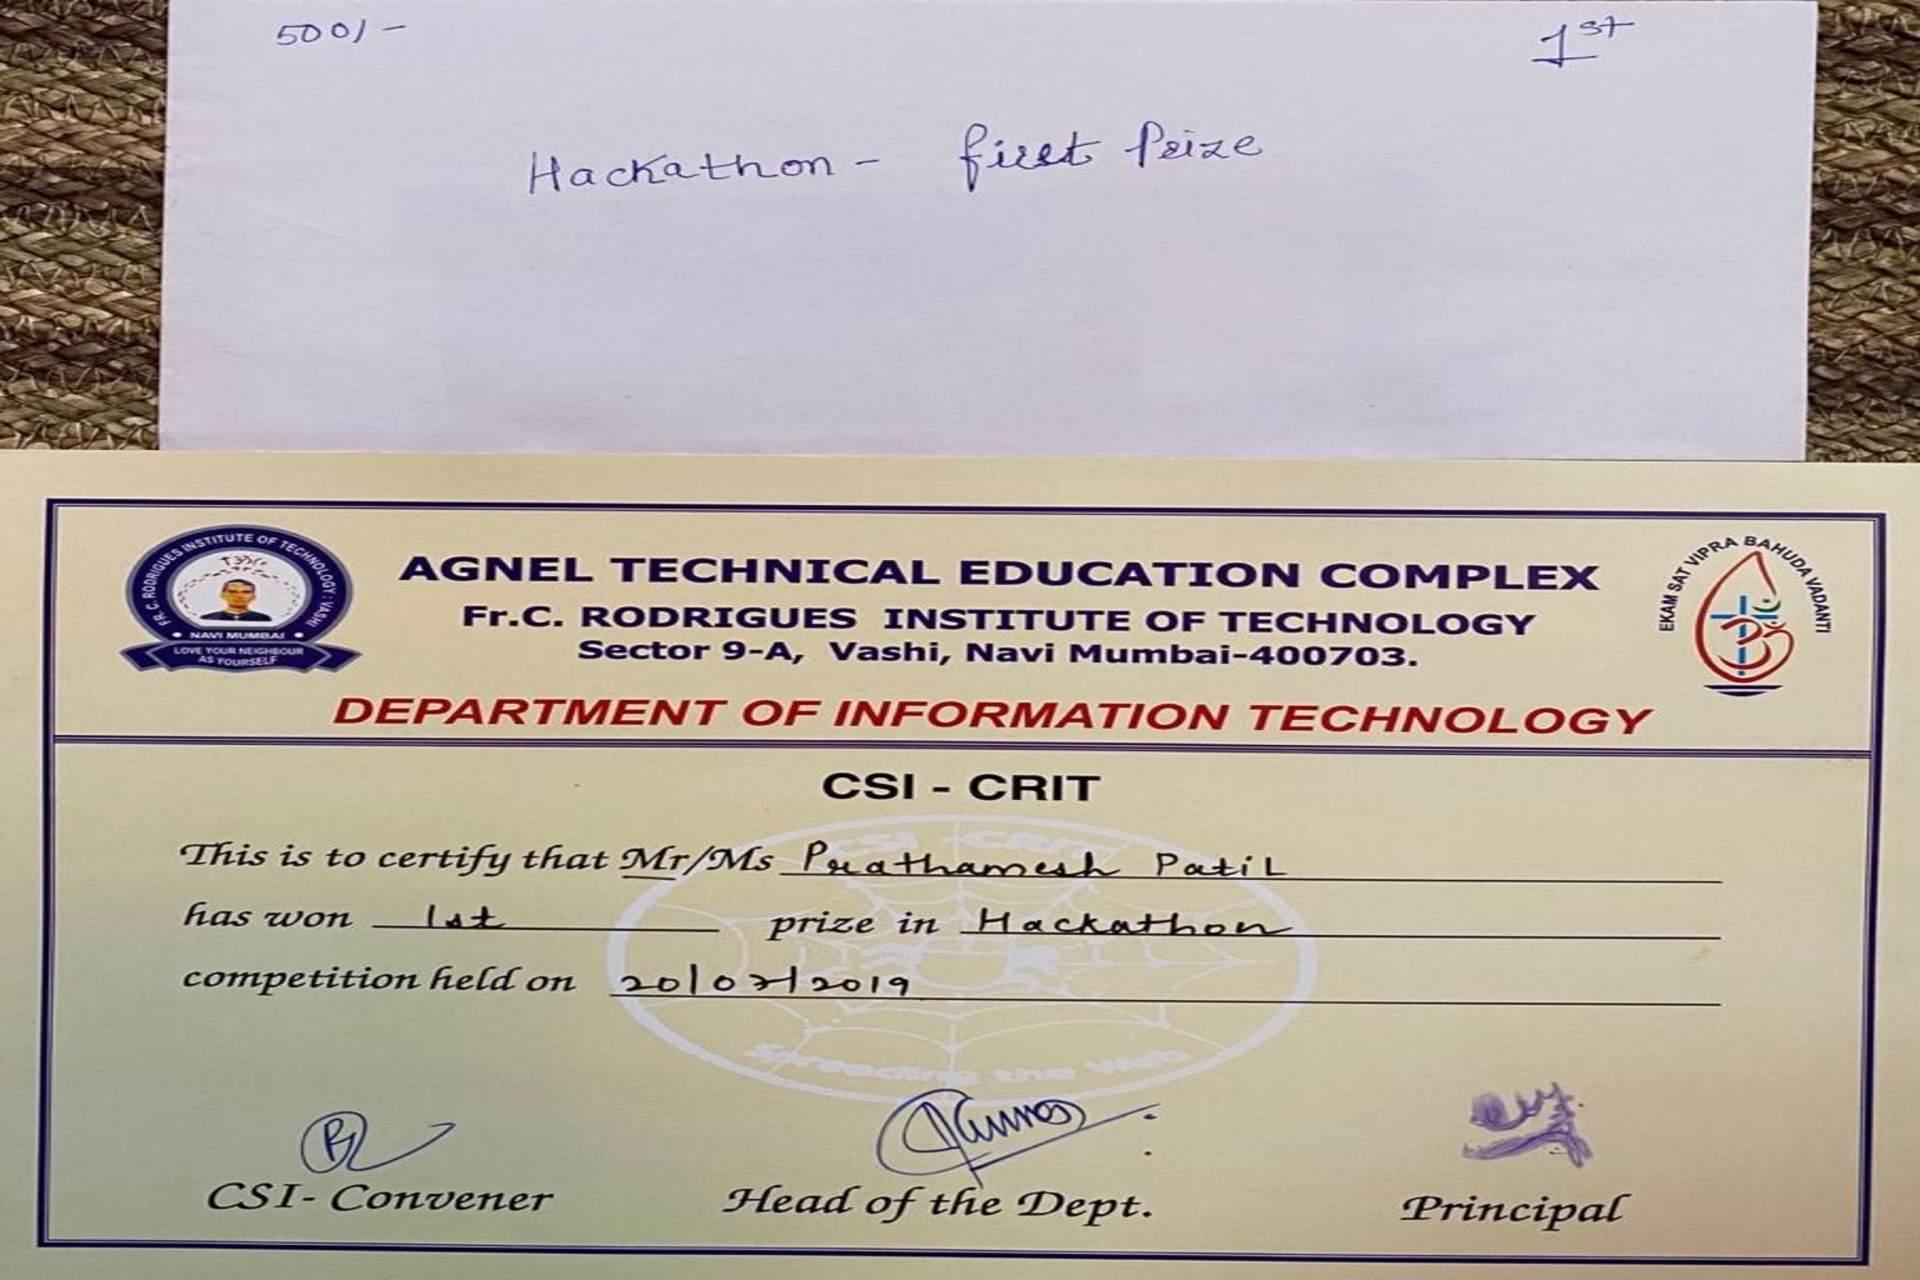 500/-
1st
Hackathon - first Prize
FR. C. RODRIGUES INSTITUTE OF TECHNOLOGY : VASHI
NAVI MUMBAI
LOVE YOUR NEIGHBOUR
AS YOURSELF
AGNEL TECHNICAL EDUCATION COMPLEX
Fr.C. RODRIGUES INSTITUTE OF TECHNOLOGY
Sector 9-A, Vashi, Navi Mumbai-400703.
EKAM SAT VIPRA BAHUDA VADANTI
DEPARTMENT OF INFORMATION TECHNOLOGY
CSI - CRIT
CSI - CRIT
This is to certify that Mr/Ms Prathamesh Patil
has won 1st prize in Hackathon
competition held on 20/02/2019
Spreading the Web
CSI- Convener
Head of the Dept.
Principal